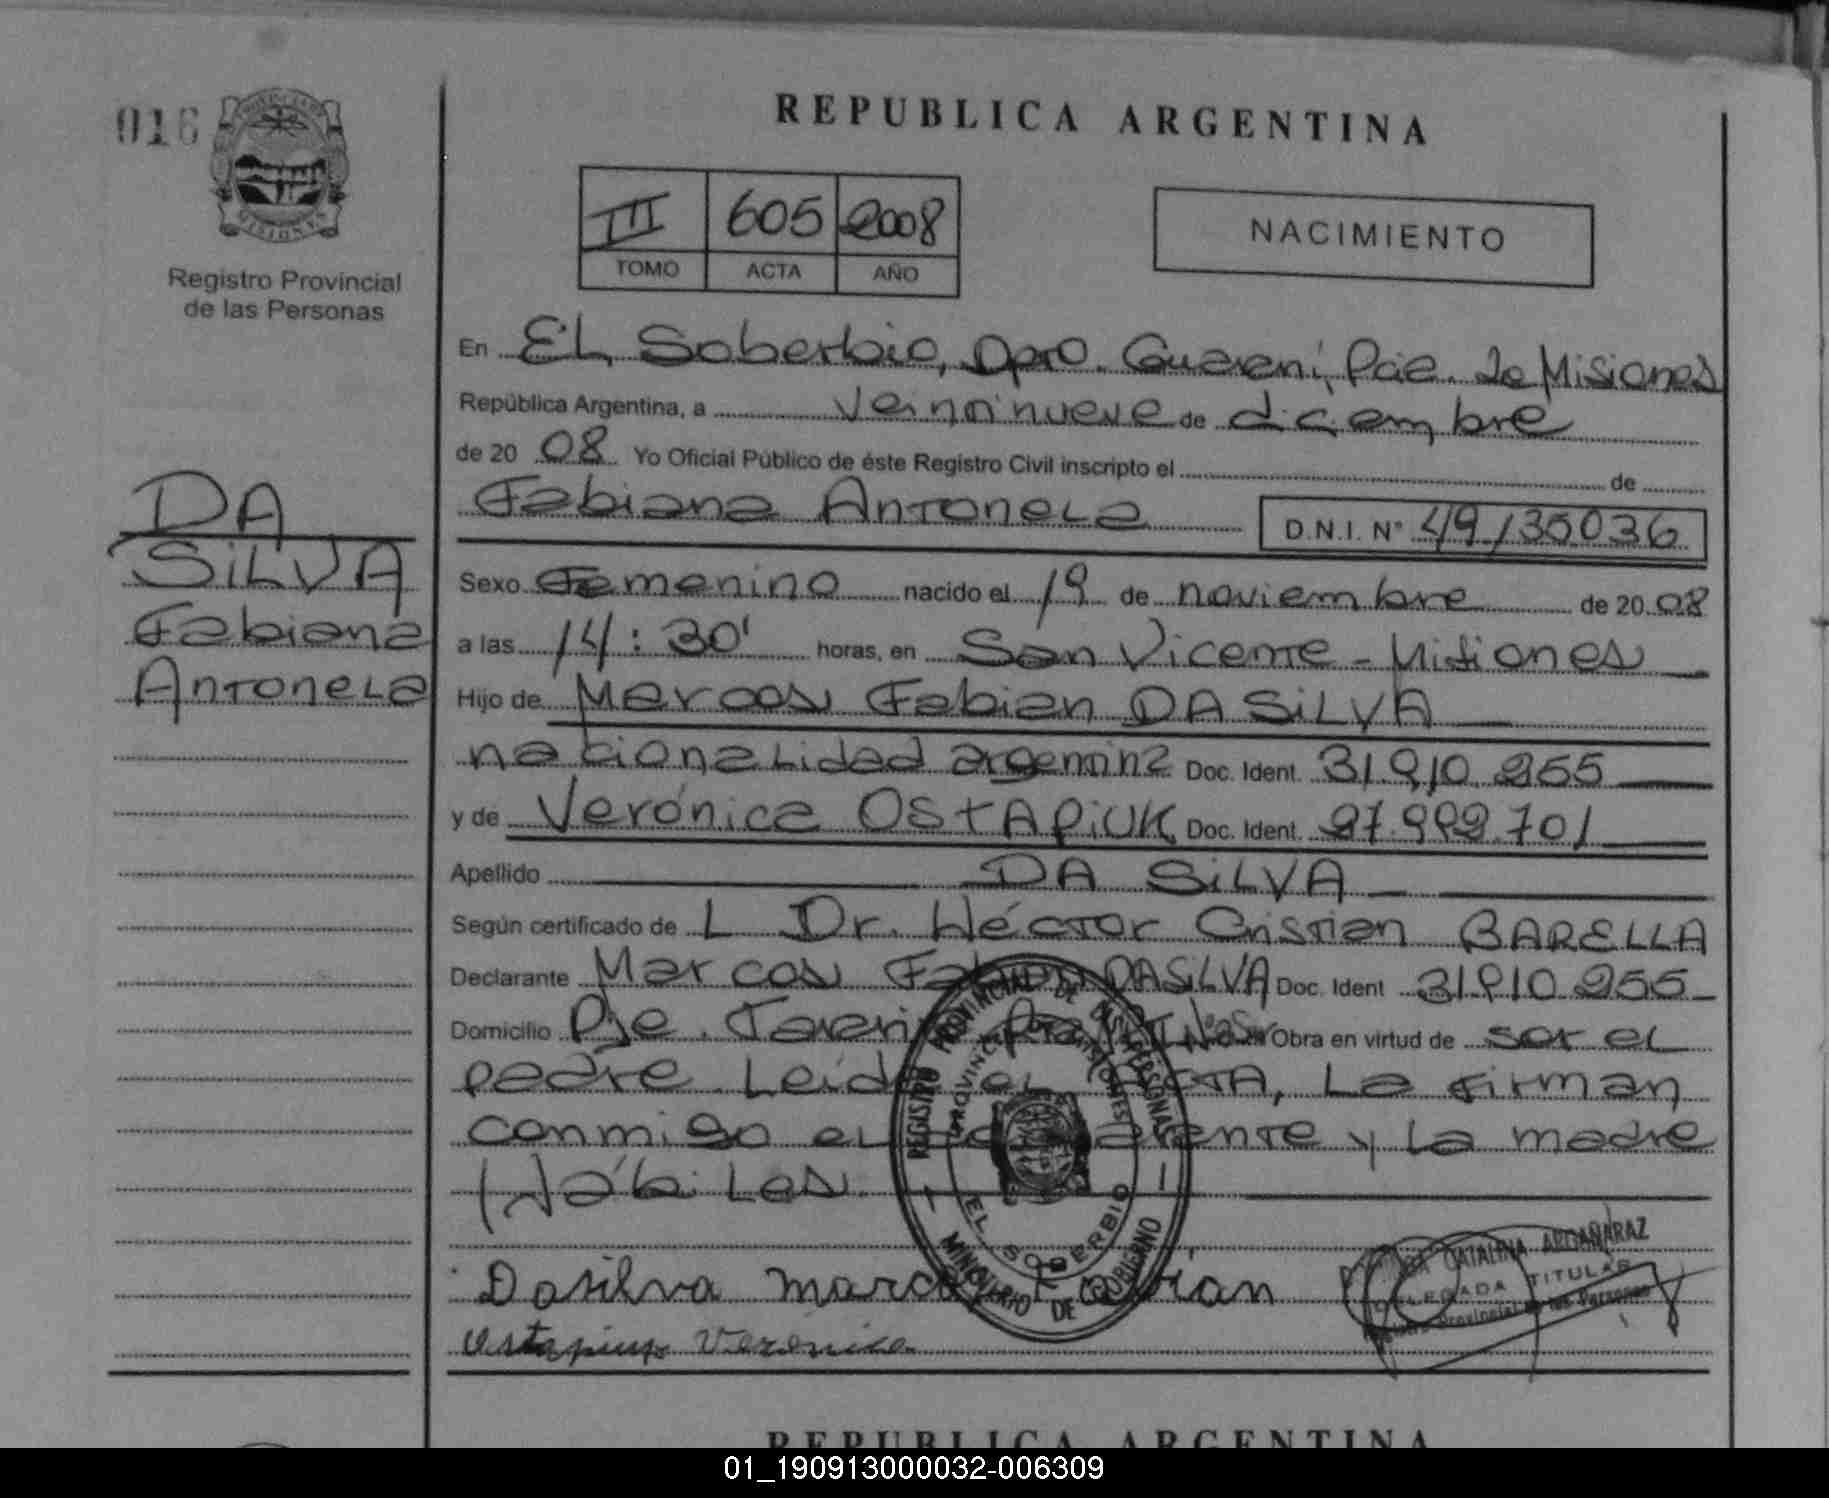 016
PROVINCIA DE
MISIONES
Registro Provincial
de las Personas
REPUBLICA ARGENTINA
III 605 2008
TOMO ACTA AÑO
NACIMIENTO
En EL Soberbio, Dpto. Guaraní, Pcia. de Misiones
República Argentina, a Veintinueve de diciembre
de 20 08 Yo Oficial Público de éste Registro Civil inscripto el de
Fabiana Antonela D.N.I. Nº 49135036
DA
SILVA
Fabiana
Antonela
Sexo Femenino nacido el 19 de noviembre de 20 08
a las 14:30' horas, en San Vicente - Misiones
Hijo de Marcos Fabian DA SILVA
nacionalidad argentina Doc. Ident. 31.910.255
y de Verónica OSTAPIUK Doc. Ident. 27.992.701
Apellido DA SILVA
Según certificado de L Dr. Héctor Cristian BARELLA
Declarante Marcos Fabian DA SILVA Doc. Ident 31910.255
Domicilio Pje. Obra en virtud de ser el
padre. Leída el ACTA, La firman
conmigo el declarante y La madre
Hábiles.
REGISTRO PROVINCIAL DE LAS PERSONAS
PROVINCIA DE MISIONES
EL SOBERBIO
MINISTERIO DE GOBIERNO
Dasilva marcos Fabian
Ostapiuk Veronica
CATALINA ARGAÑARAZ
DELEGADA TITULAR
Registro Provincial de las Personas
REPUBLICA ARGENTINA
01_190913000032-006309